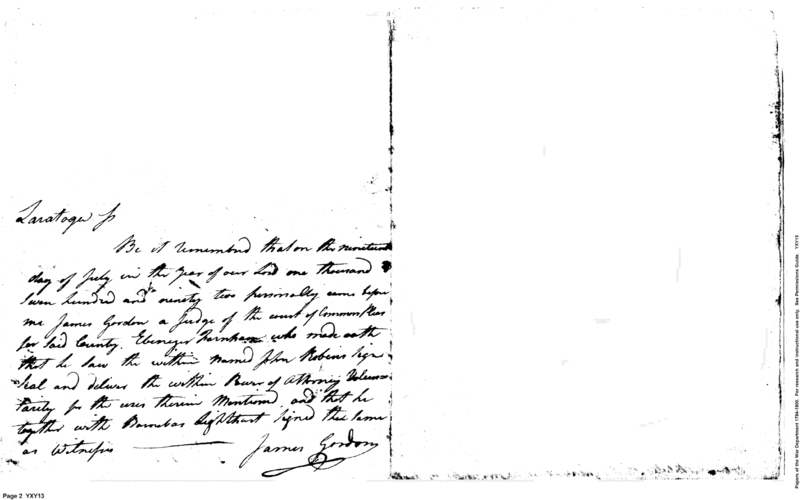 Saratoga ss
Be it remembred that on this nineteenth
day of July in the Year of our Lord one thousand
seven hundred and ninety two personally came before
me James Gordon a Judge of the court of Common Pleas
for said County. Ebenezer Farnham who made oath
that he saw the within Named John Robins sign
seal and deliver the within Power of Attorney Volun
tarily for the uses therein Mentioned and that he
together with Barnabas signed their Names
as Witness
James Gordon
Page 2 YXY13
Papers of the War Department 1784-1800. For research and instructional use only. See Permissions Guide. YXY13